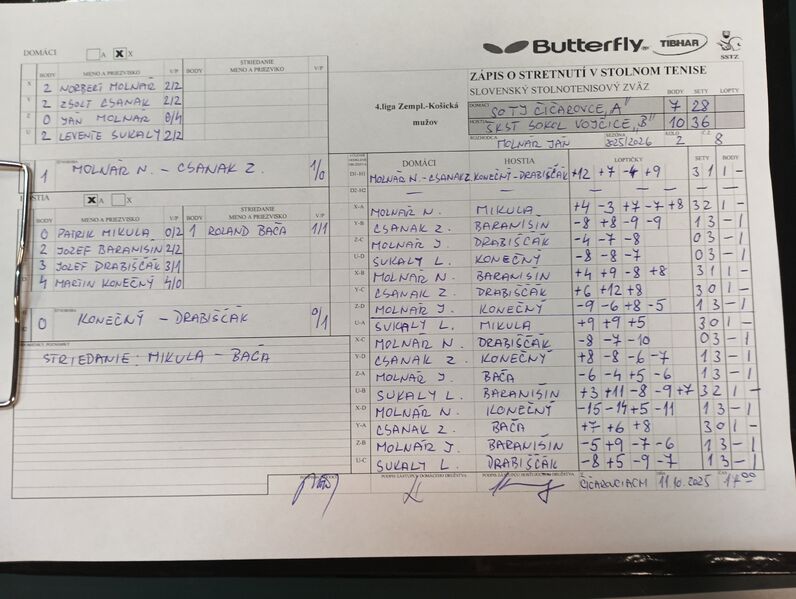 DOMÁCI A X X
Butterfly TIBHAR SSTZ
ZÁPIS O STRETNUTÍ V STOLNOM TENISE
SLOVENSKÝ STOLNOTENISOVÝ ZVÄZ BODY SETY LOPTY
4.liga Zempl.-Košická mužov
DOMÁCI SOTJ ČIČAROVCE "A" 7 28
HOSTIA ŠKST SOKOL VOJČICE "B" 10 36
ROZHODCA MOLNÁR JÁN SEZÓNA 2025/2026 KOLO 2 Č.Z. 8
BODY MENO A PRIEZVISKO V/P BODY STRIEDANIE MENO A PRIEZVIKO V/P
X 2 NORBERT MOLNÁR 2/2
Y 2 ZSOLT CSANAK 2/2
Z 0 JÁN MOLNÁR 0/4
U 2 LEVENTE SUKALY 2/2
1 MOLNÁR N. - CSANAK Z. 1/0
HOSTIA X A X
BODY MENO A PRIEZVISKO V/P BODY STRIEDANIE MENO A PRIEZVISKO V/P
0 PATRIK MIKULA 0/2 1 ROLAND BAČA 1/1
2 JOZEF BARANIŠIN 2/2
3 JOZEF DRABIŠČÁK 3/1
4 MARTIN KONEČNÝ 4/0
0 KONEČNÝ - DRABIŠČÁK 0/1
STRIEDANIE: MIKULA - BAČA
DOMÁCI HOSTIA LOPTIČKY SETY BODY
D1-H1 MOLNÁR N.-CSANAK Z. KONEČNÝ-DRABIŠČÁK +12 +7 -4 +9 3 1 1 -
D2-H2 — — — — — — — —
X-A MOLNÁR N. MIKULA +4 -3 +7 -7 +8 3 2 1 -
Y-B CSANAK Z. BARANIŠIN -8 +8 -9 -9 1 3 - 1
Z-C MOLNÁR J. DRABIŠČÁK -4 -7 -8 0 3 - 1
U-D SUKALY L. KONEČNÝ -8 -8 -7 0 3 - 1
X-B MOLNÁR N. BARANIŠIN +4 +9 -8 +8 3 1 1 -
Y-C CSANAK Z. DRABIŠČÁK +6 +12 +8 3 0 1 -
Z-D MOLNÁR J. KONEČNÝ -9 -6 +8 -5 1 3 - 1
U-A SUKALY L. MIKULA +9 +9 +5 3 0 1 -
X-C MOLNÁR N. DRABIŠČÁK -8 -7 -10 0 3 - 1
Y-D CSANAK Z. KONEČNÝ +8 -8 -6 -7 1 3 - 1
Z-A MOLNÁR J. BAČA -6 -4 +5 -6 1 3 - 1
U-B SUKALY L. BARANIŠIN +3 +11 -8 -9 +7 3 2 1 -
X-D MOLNÁR N. KONEČNÝ -15 -14 +5 -11 1 3 - 1
Y-A CSANAK Z. BAČA +7 +6 +8 3 0 1 -
Z-B MOLNÁR J. BARANIŠIN -5 +9 -7 -6 1 3 - 1
U-C SUKALY L. DRABIŠČÁK -8 +5 -9 -7 1 3 - 1
PODPIS ZÁSTUPCU DOMÁCEHO DRUŽSTVA PODPIS ZÁSTUPCU HOSŤUJÚCEHO DRUŽSTVA V ČIČAROVCIACH DŇA 11.10.2025 ČAS 17 00